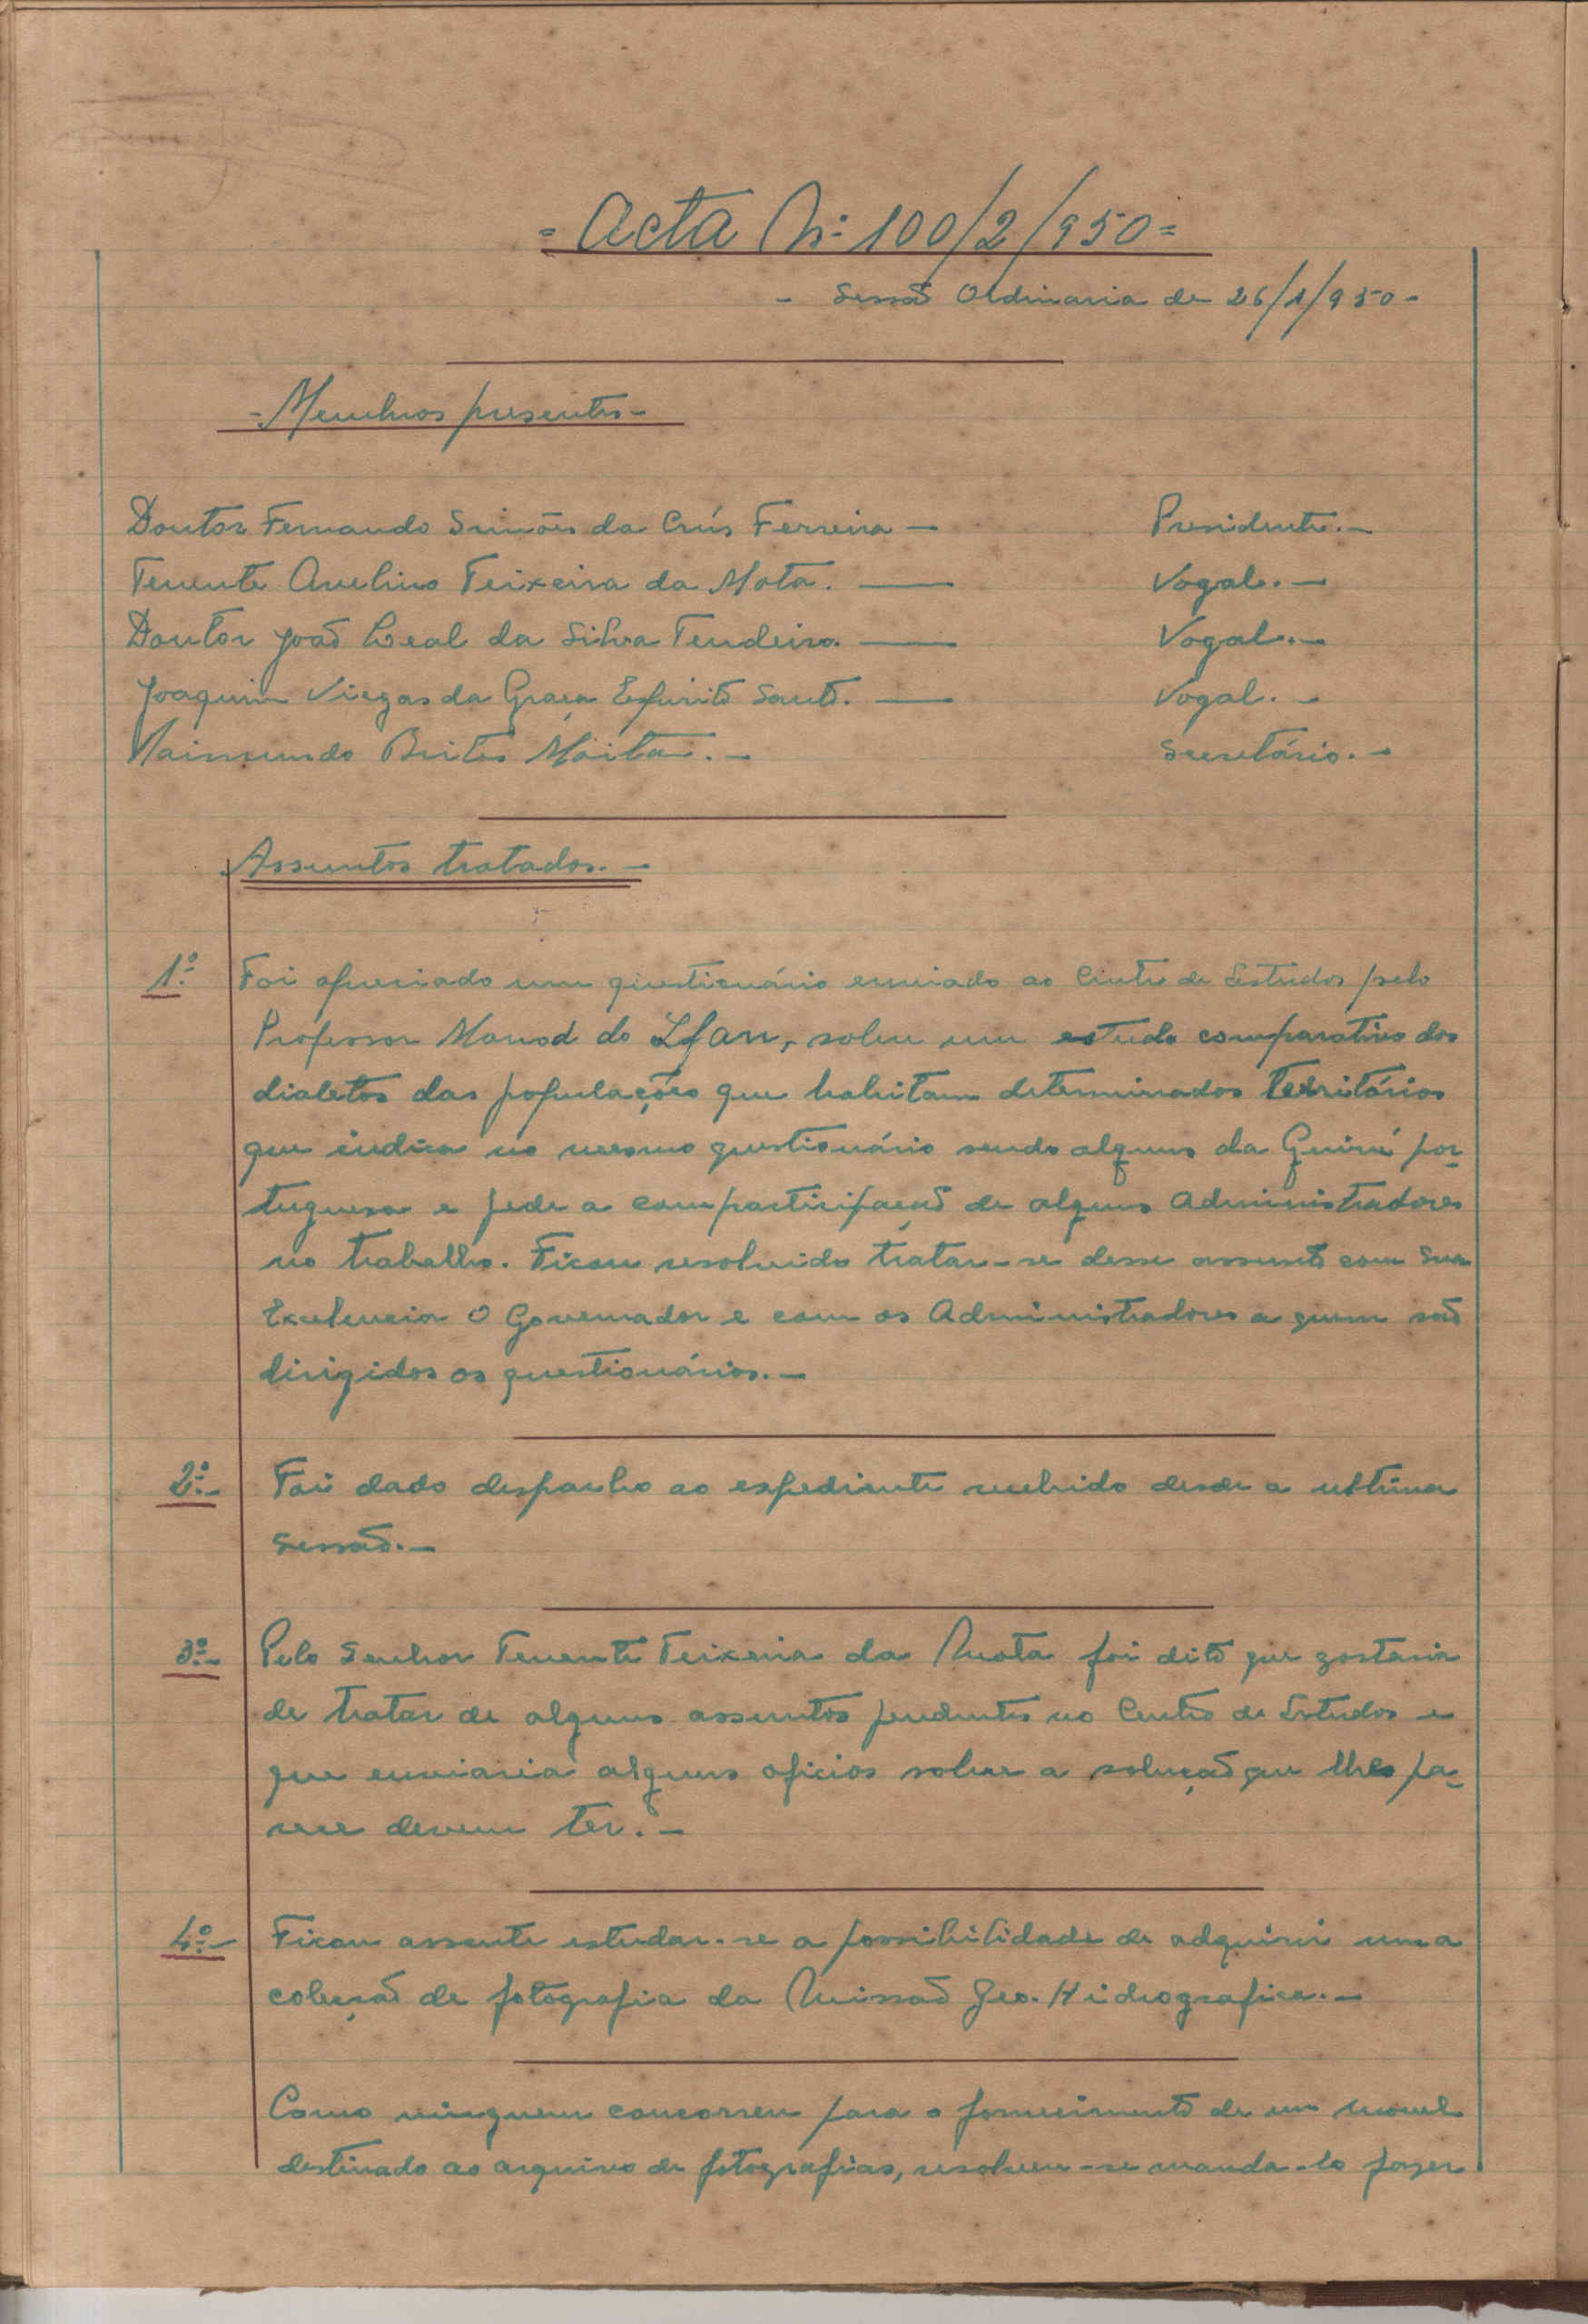 = Acta Nº 100/2/950 =
- Sessão Ordinaria de 26/1/950 -
- Membros presentes -
Doutor Fernando Simões da Crús Ferreira — Presidente. -
Tenente Avelino Teixeira da Mota. — Vogal. -
Doutor João Leal da Silva Tendeiro. — Vogal. -
Joaquim Viegas da Graça Espirito Santo. — Vogal. -
Raimundo Brites Moita. - Secretário. -
Assuntos tratados. -
1º Foi apreciado um questionário enviado ao Centro de Estudos pelo
Professor Monod do Ifan, sobre um estudo comparativo dos
dialetos das populações que habitam determinados Territórios
que indica no mesmo questionário sendo alguns da Guiné por-
tuguesa e pede a comparticipação de alguns Administradores
no trabalho. Ficou resolvido tratar-se desse assunto com Sua
Excelencia O Governador e com os Administradores a quem são
dirigidos os questionários. -
2º - Foi dado despacho ao expediente recebido desde a ultima
Sessão. -
3º - Pelo Senhor Tenente Teixeira da Mota foi dito que gostaria
de tratar de alguns assuntos pendentes no Centro de Estudos e
que enviaria alguns oficios sobre a solução que lhes pa-
rece devem ter. -
4º - Ficou assente estudar-se a possibilidade de adquirir uma
coleção de fotografia da Missão Geo-Hidrografica. -
Como ninguem concorreu para o fornecimento de um movel
destinado ao arquivo de fotografias, resolveu-se manda-lo fazer